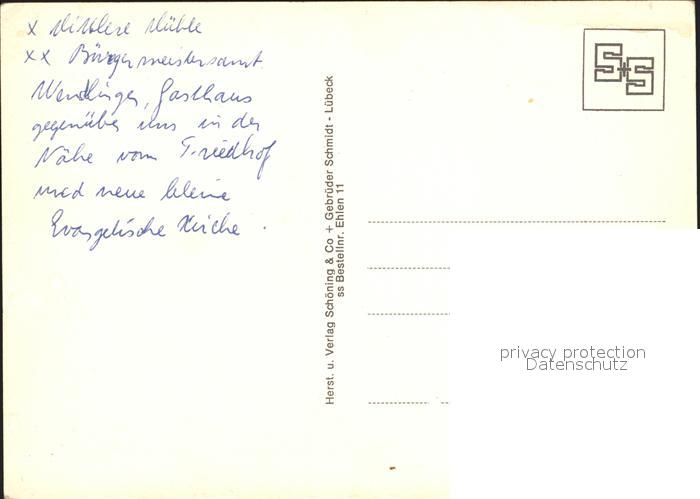 x Mittlere Mühle
xx Bürgermeisteramt
Wendlinger, Gasthaus
gegenüber uns in der
Nähe vom Friedhof
und neue kleine
Evangelische Kirche.
Herst. u. Verlag Schöning & Co + Gebrüder Schmidt - Lübeck
ss Bestellnr. Ehlen 11
S+S
privacy protection
Datenschutz